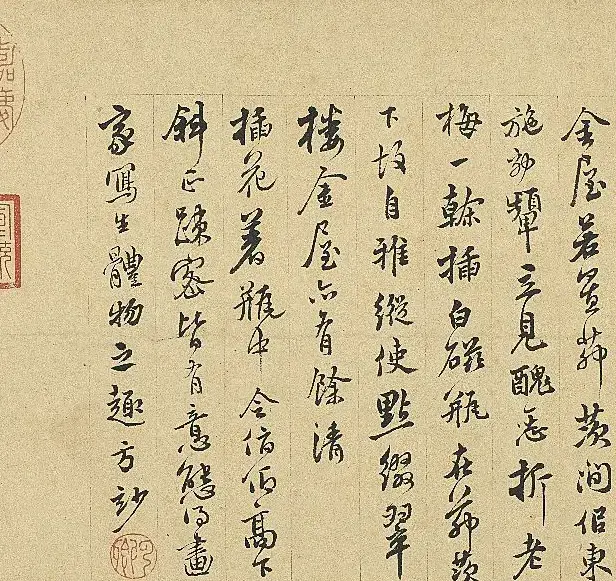 金屋若置茆茨間佀東
施効顰立見醜惡折老
梅一榦插白磁瓶在茆茨
下故自雅縱使點綴翠
樓金屋亦有餘清
插花著瓶中令俯仰高下
斜正疎密皆有意態得畫
家寫生體物之趣方妙